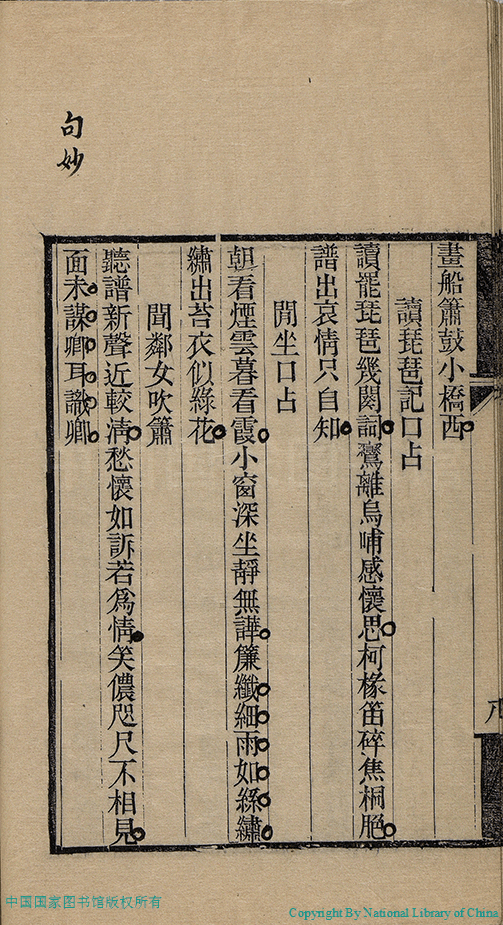 畫船簫鼓小橋西
讀琵琶記口占
讀罷琵琶幾闋詞鸞離烏哺感懷思柯椽笛碎焦桐脆
譜出哀情只自知
閒坐口占
朝看煙雲暮看霞小窗深坐靜無譁簾纖細雨如絲繡
繡出苔衣似綠花
聞鄰女吹簫
聽譜新聲近較淸愁懷如訴若爲情笑儂咫尺不相見
面未謀卿耳識卿
句妙
八
中国国家图书馆版权所有
Copyright By National Library of China